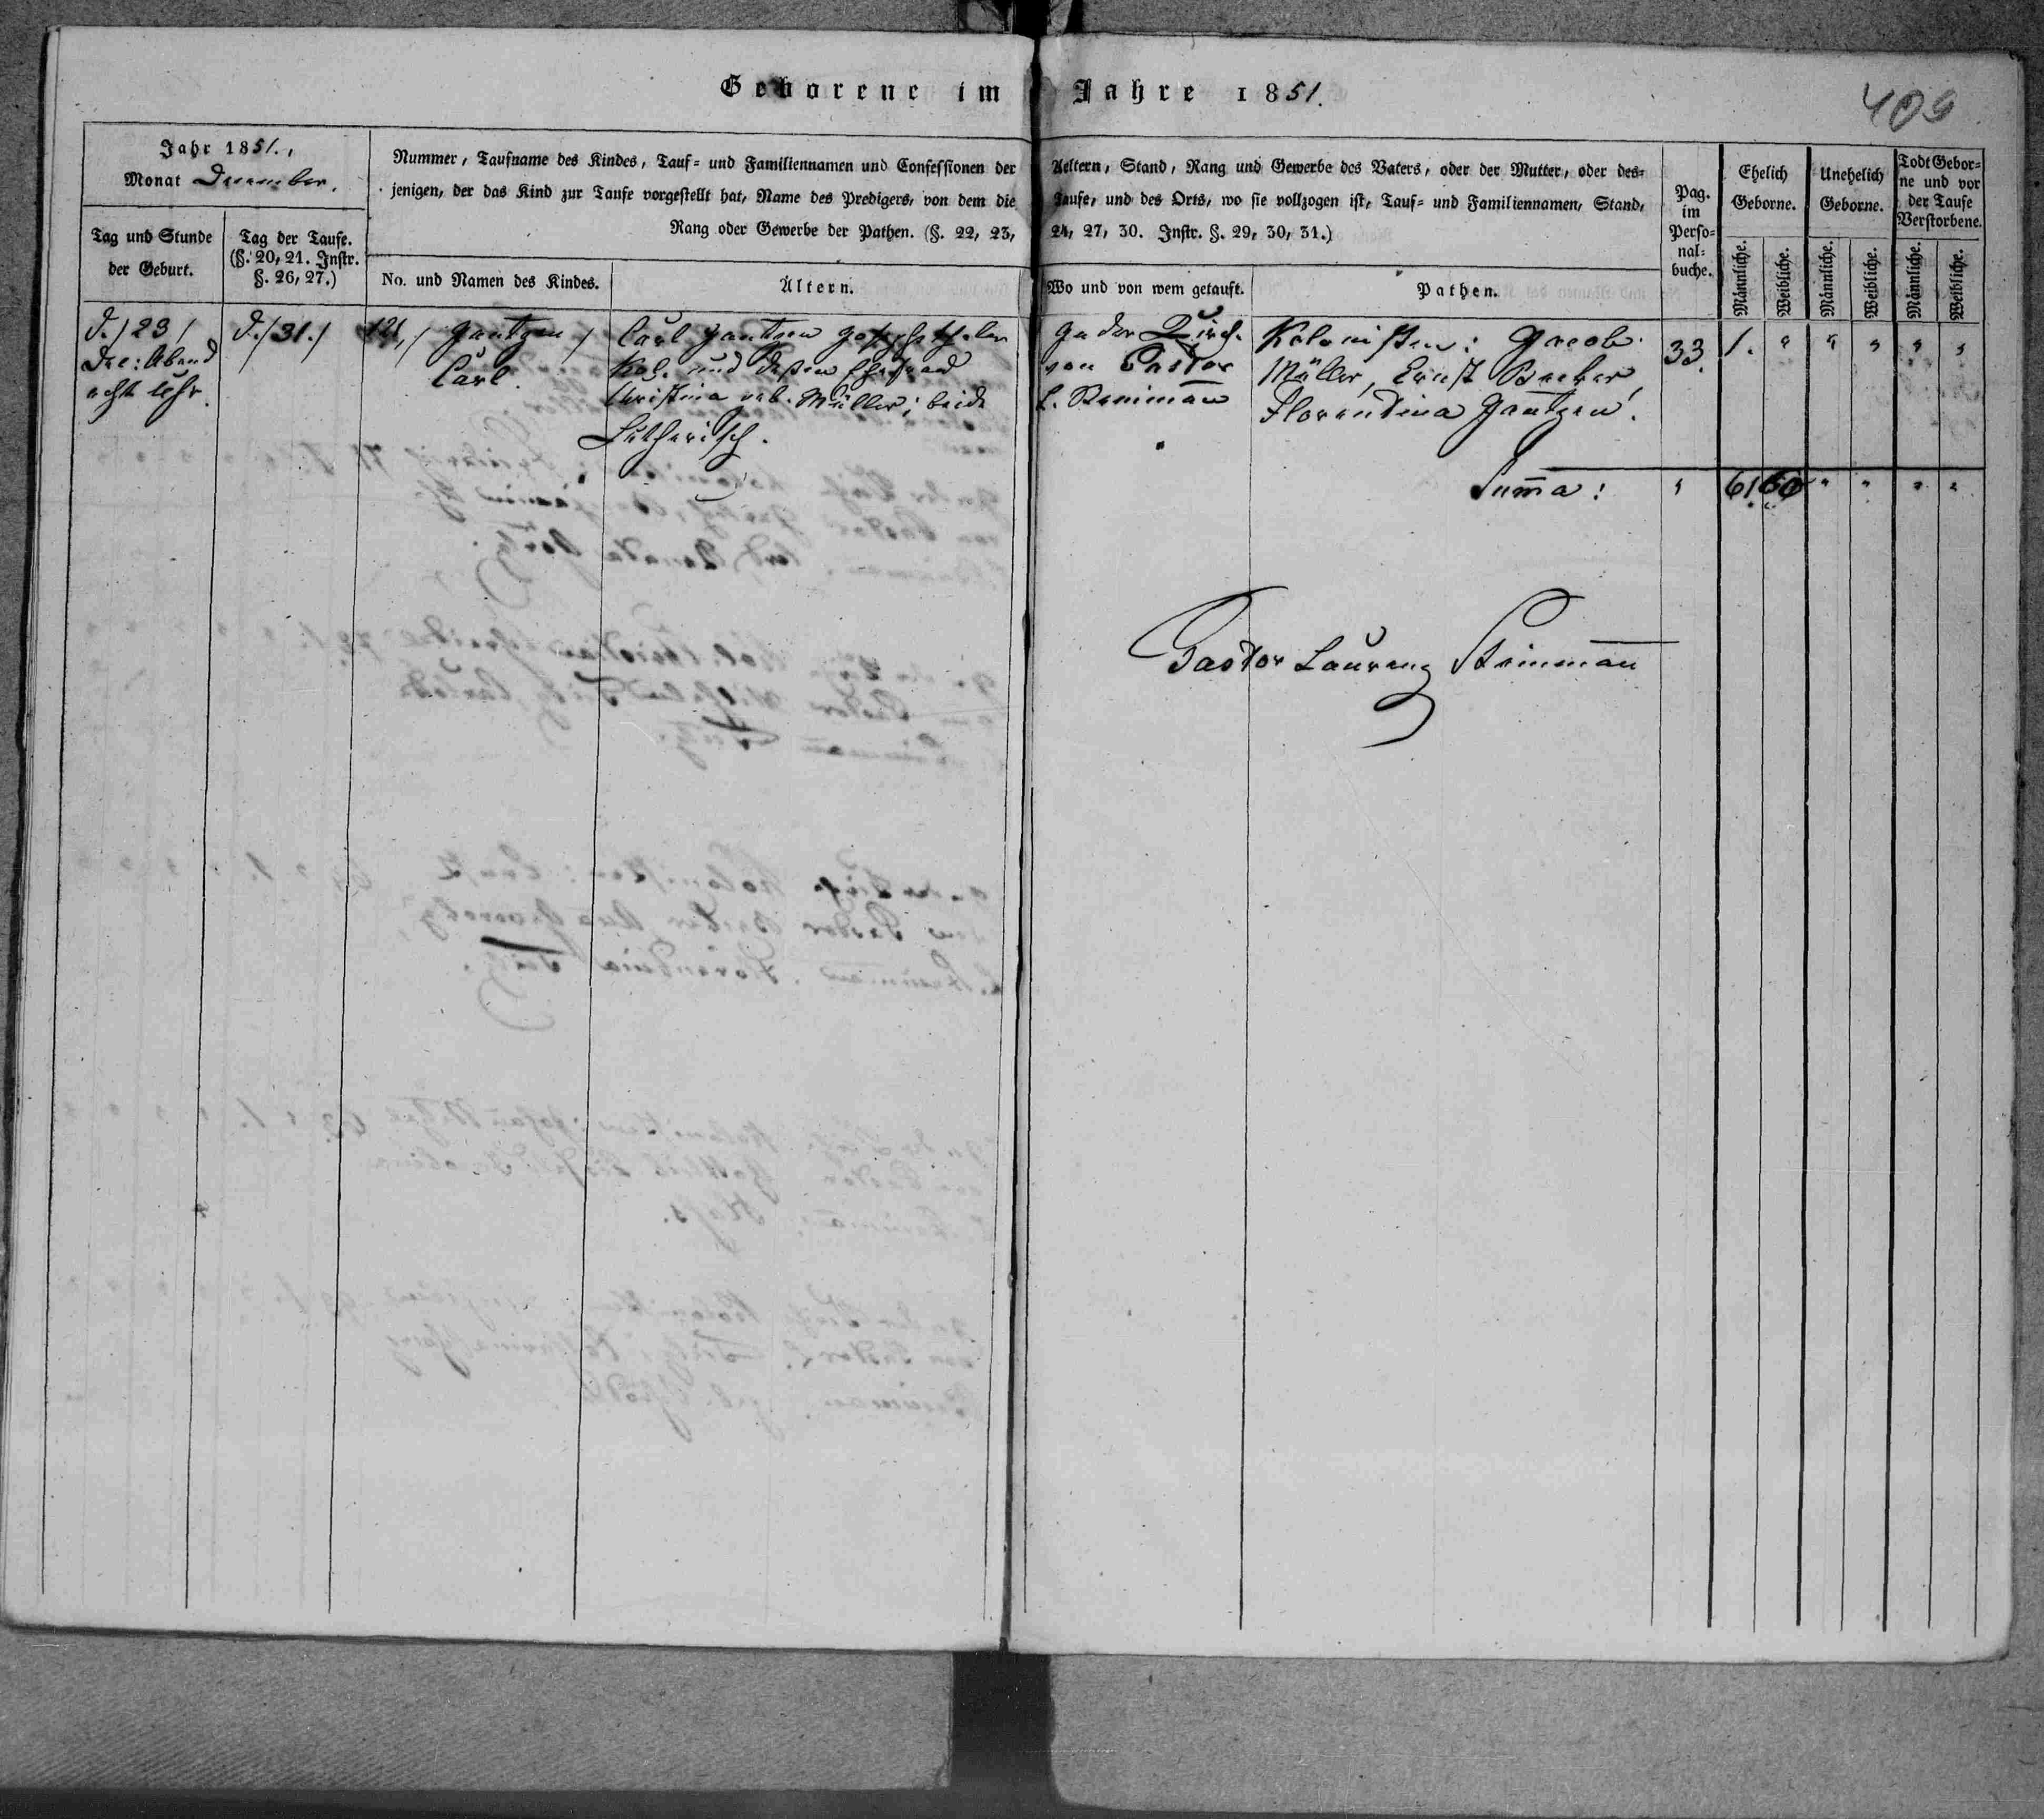 Geborene im Jahre 1851.
409
Jahr 1851.,
Monat December.
Tag und Stunde
der Geburt.
Tag der Taufe.
(§. 20, 21. Instr.
§. 26, 27.)
Nummer, Taufname des Kindes, Tauf- und Familiennamen und Confessionen der Aeltern, Stand, Rang und Gewerbe des Vaters, oder der Mutter, oder des-
jenigen, der das Kind zur Taufe vorgestellt hat, Name des Predigers, von dem die Taufe, und des Orts, wo sie vollzogen ist, Tauf- und Familiennamen, Stand,
Rang oder Gewerbe der Pathen. (§. 22, 23, 24, 27, 30. Instr. §. 29, 30, 31.)
No. und Namen des Kindes.
Ältern.
Wo und von wem getauft.
Pathen.
Pag.
im
Perso-
nal-
buche.
Ehelich
Geborne.
Männliche.
Weibliche.
Unehelich
Geborne.
Männliche.
Weibliche.
Todt Gebor-
ne und vor
der Taufe
Verstorbene.
Männliche.
Weibliche.
d. / 23 /
Dec: Abend
acht Uhr.
d. / 31. /
121, / Jantzen /
Carl.
Carl Jantzen
Kol. und deßen
Christina geb. Müller; beide
Lutherisch.
In der Kirch.
von Pastor
L. Steinmañ
Kolonisten: Jacob
Müller, Ernst Becker,
Florendina Jantzen.
33. 1. " " " " "
Sum̃a: " 61 60 " " " "
Pastor Laurenz Steinmañ